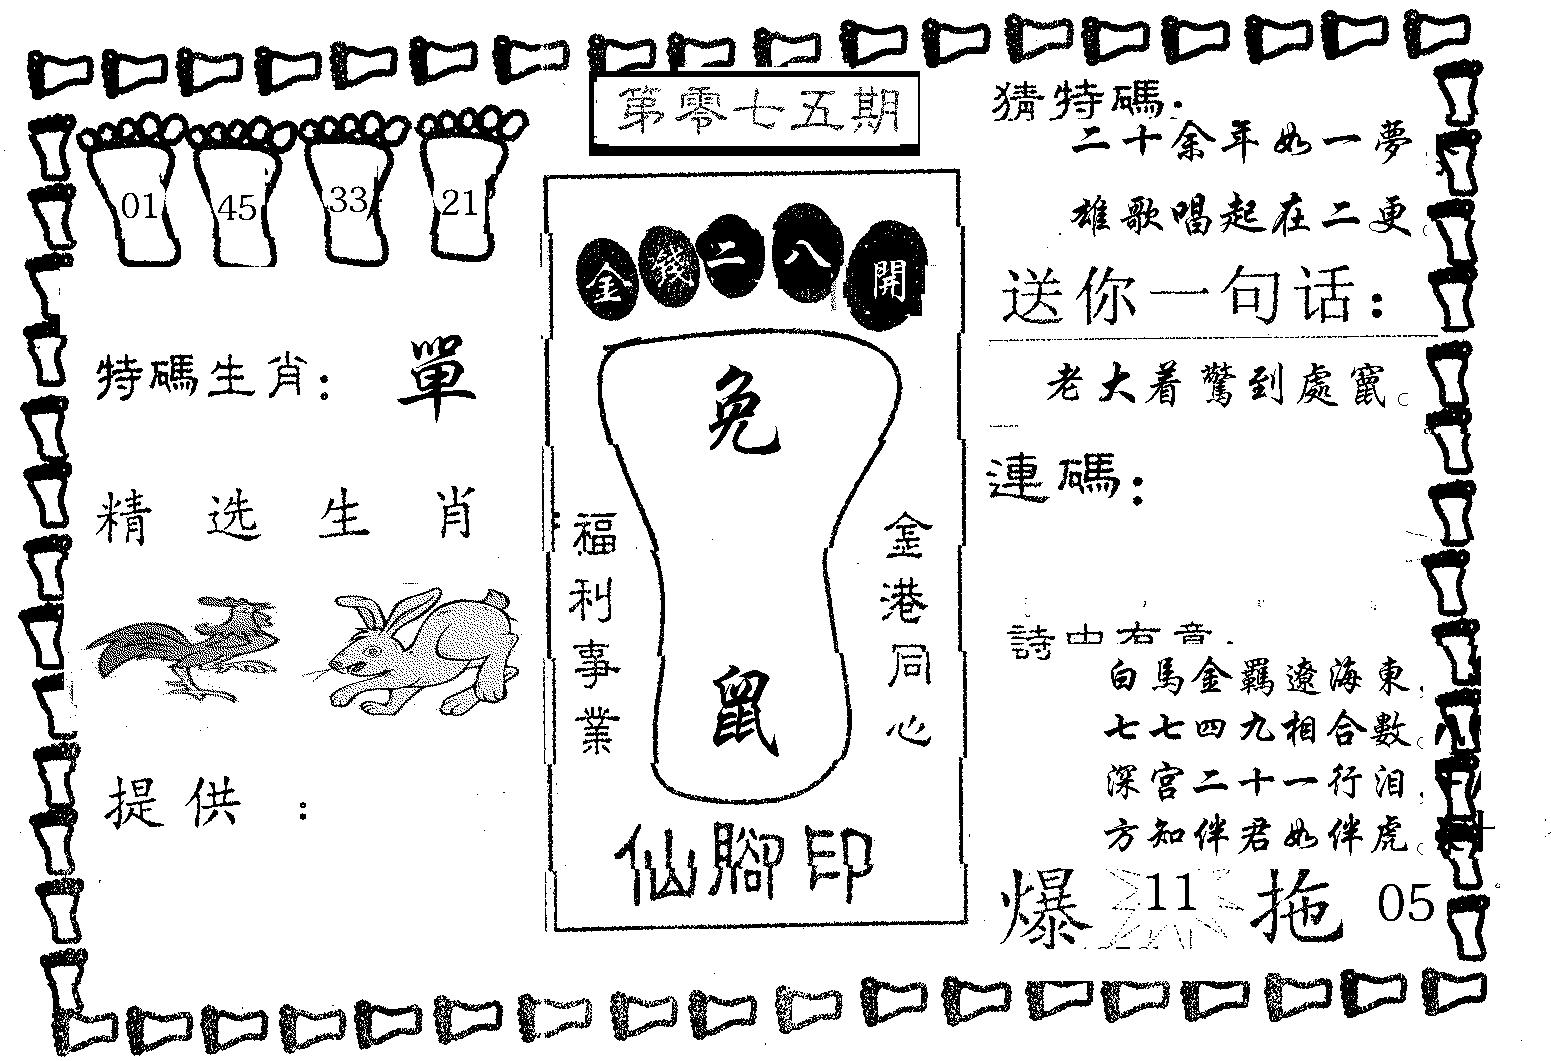 第零七五期
01 45 33 21
特碼生肖：單
精选生肖
提供：
金錢二八開
兔
鼠
福利事業
金港同心
仙腳印
猜特碼：
二十余年如一夢
雄歌唱起在二更。
送你一句话：
老大着驚到處竄。
連碼：
詩中有意：
白馬金羈遼海東，
七七四九相合數。
深宫二十一行泪，
方知伴君如伴虎。
爆 11 拖 05